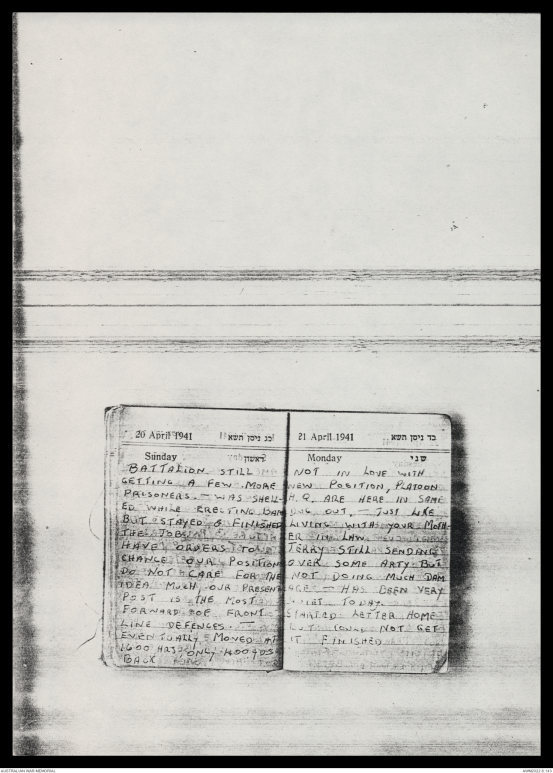 20 April 1941 כג ניסן תשא
Sunday ראשון
BATTALION STILL
GETTING A FEW MORE
PRISONERS - WAS SHELL-
ED WHILE ERECTING
BUT STAYED & FINISHED
THE JOB
HAVE ORDERS TO
CHANGE OUR POSITION
DO NOT CARE FOR THE
IDEA MUCH, OUR PRESENT
POST IS THE MOST
FORWARD OF FRONT
LINE DEFENCES.
EVENTUALLY MOVED AT
1600 HRS ONLY 400 YDS
BACK
21 April 1941 כד ניסן תשא
Monday שני
NOT IN LOVE WITH
NEW POSITION, PLATOON
H.Q. ARE HERE IN SAME
OUT, - JUST LIKE
LIVING WITH YOUR MOTH-
ER IN LAW.
JERRY STILL SENDING
OVER SOME ARTY BUT
NOT DOING MUCH DAM
AGE - HAS BEEN VERY
QUIET TODAY.
STARTED LETTER HOME
BUT COULD NOT GET
IT FINISHED
AUSTRALIAN WAR MEMORIAL